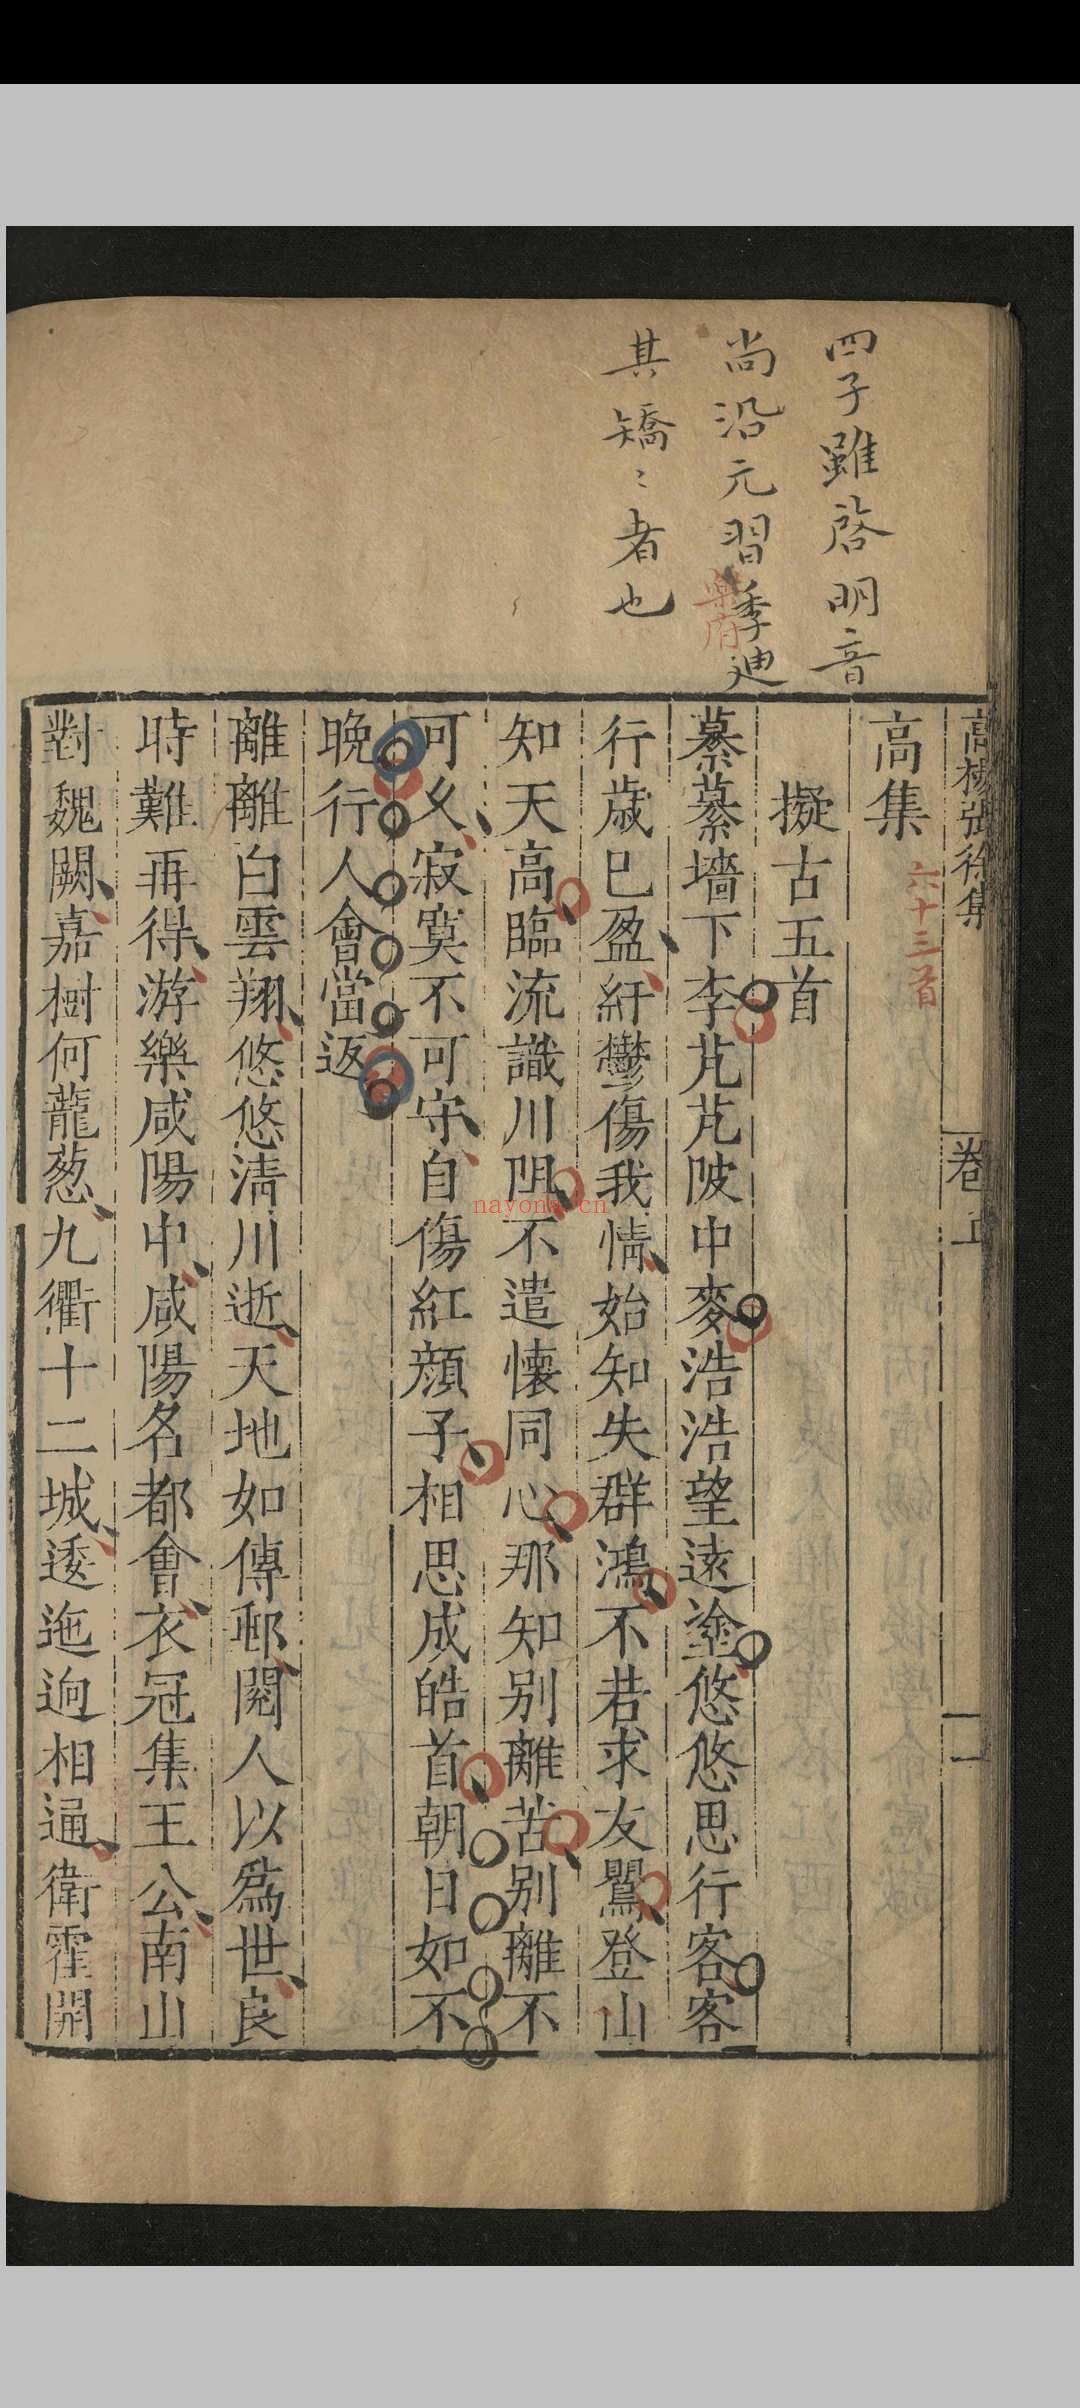 四子雖啓明音
尚沿元習季迪
其矯〻者也
樂府
高楊張徐集
卷
一
高集
六十三首
擬古五首
蓁蓁墻下李芃芃陂中麥浩浩望遠塗悠悠思行客客
行歲已盈紆鬱傷我情始知失群鴻不若求友鸎登山
知天高臨流識川阻不遣懷同心那知别離苦别離不
可久寂寞不可守自傷紅顔子相思成皓首朝日如不
晚行人會當返
離離白雲翔悠悠清川逝天地如傳郵閱人以爲世良
時難再得游樂咸陽中咸陽名都會衣冠集王公南山
對魏闕嘉樹何蘢葱九衢十二城逶迤迥相通衛霍開
nayona.cn